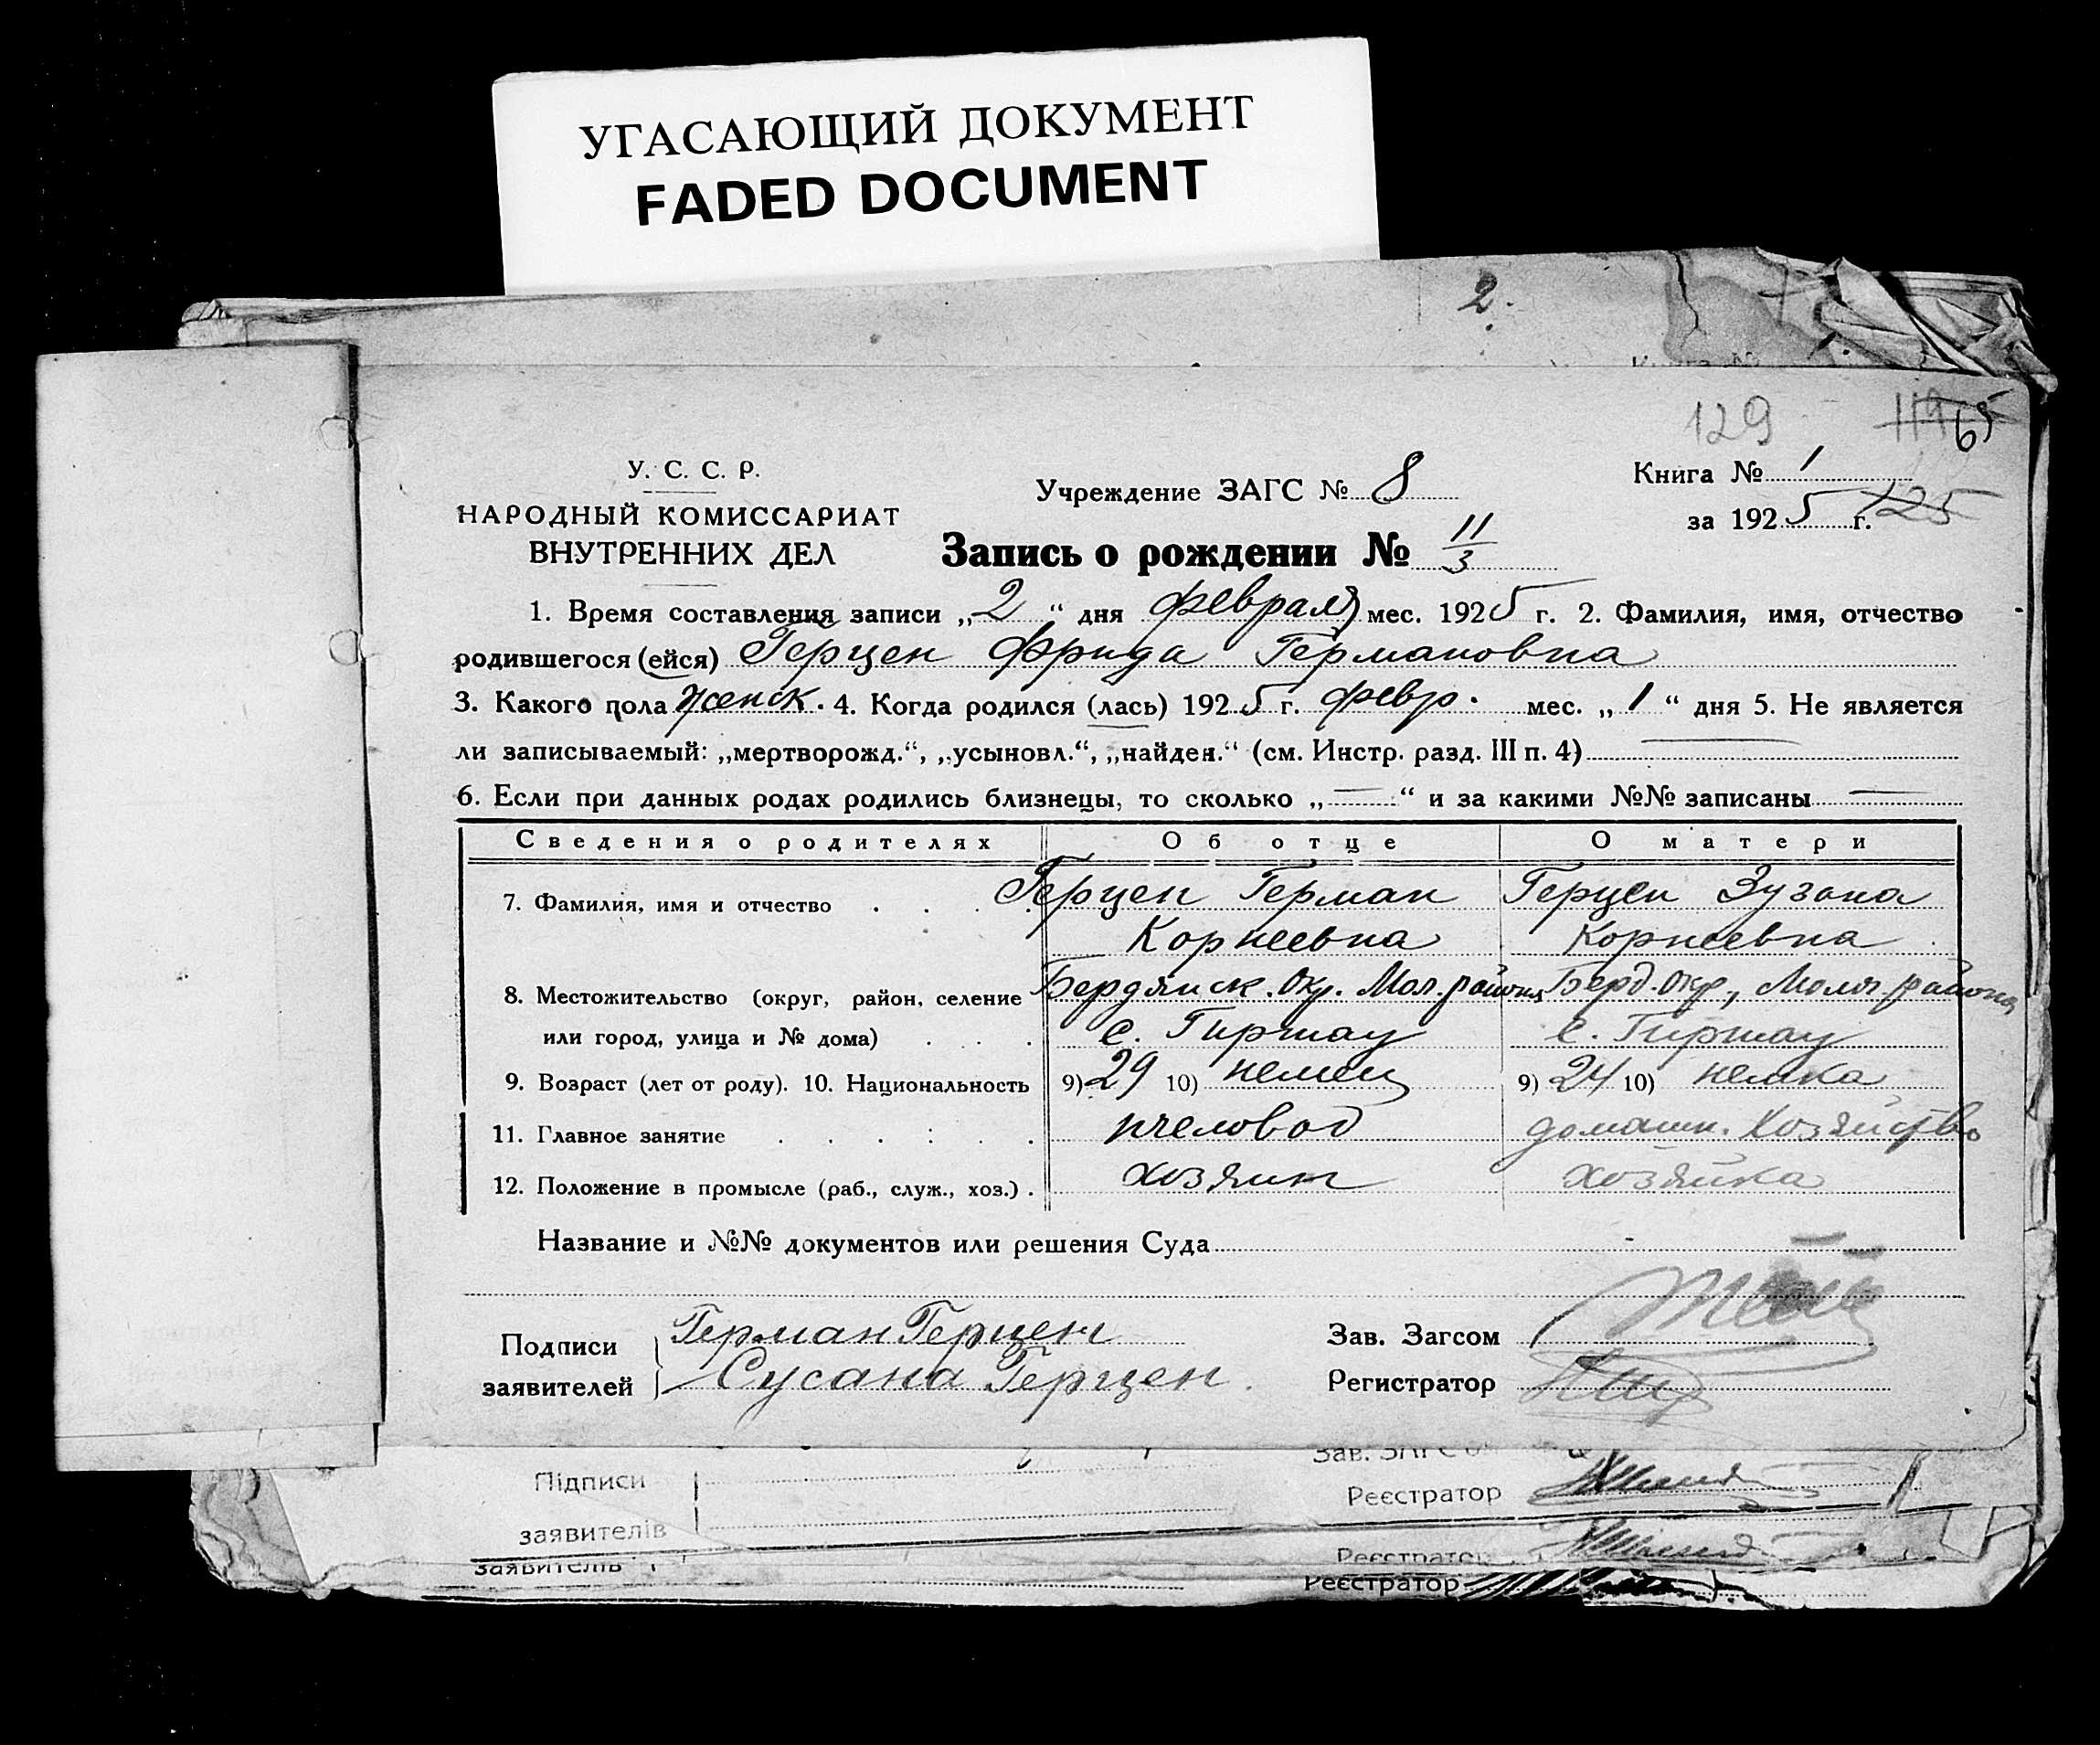 УГАСАЮЩИЙ ДОКУМЕНТ
FADED DOCUMENT
2.
129 119 65
У. С. С. Р.
НАРОДНЫЙ КОМИССАРИАТ
ВНУТРЕННИХ ДЕЛ
Учреждение ЗАГС № 8
Книга № 1
за 1925 г. 125
Запись о рождении № 11/3
1. Время составления записи „2“ дня февраля мес. 1925 г. 2. Фамилия, имя, отчество
родившегося (ейся) Герцен Фрида Германовна
3. Какого пола женск. 4. Когда родился (лась) 1925 г. февр. мес. „1“ дня 5. Не является
ли записываемый: „мертворожд.“, „усыновл.“, „найден.“ (см. Инстр. разд. III п. 4) —
6. Если при данных родах родились близнецы, то сколько „—“ и за какими №№ записаны —
Сведения о родителях Об отце О матери
7. Фамилия, имя и отчество . . . . Герцен Герман Герцен Зузана
Корнеевна Корнеевна
8. Местожительство (округ, район, селение Бердянск. Окр. Мол. района Берд. окр., Молоч. района
или город, улица и № дома) . . . с. Гиршау с. Гиршау
9. Возраст (лет от роду). 10. Национальность 9) 29 10) немец 9) 24 10) немка
11. Главное занятие . . . . . . пчеловод домашн. хозяйство
12. Положение в промысле (раб., служ., хоз.) . хозяин хозяйка
Название и №№ документов или решения Суда
Подписи Герман Герцен Зав. Загсом
заявителей Сусана Герцен. Регистратор
Зав. ЗАГС
Підписи
Реєстратор
заявителів
Реєстратор
заявителів
Реєстратор